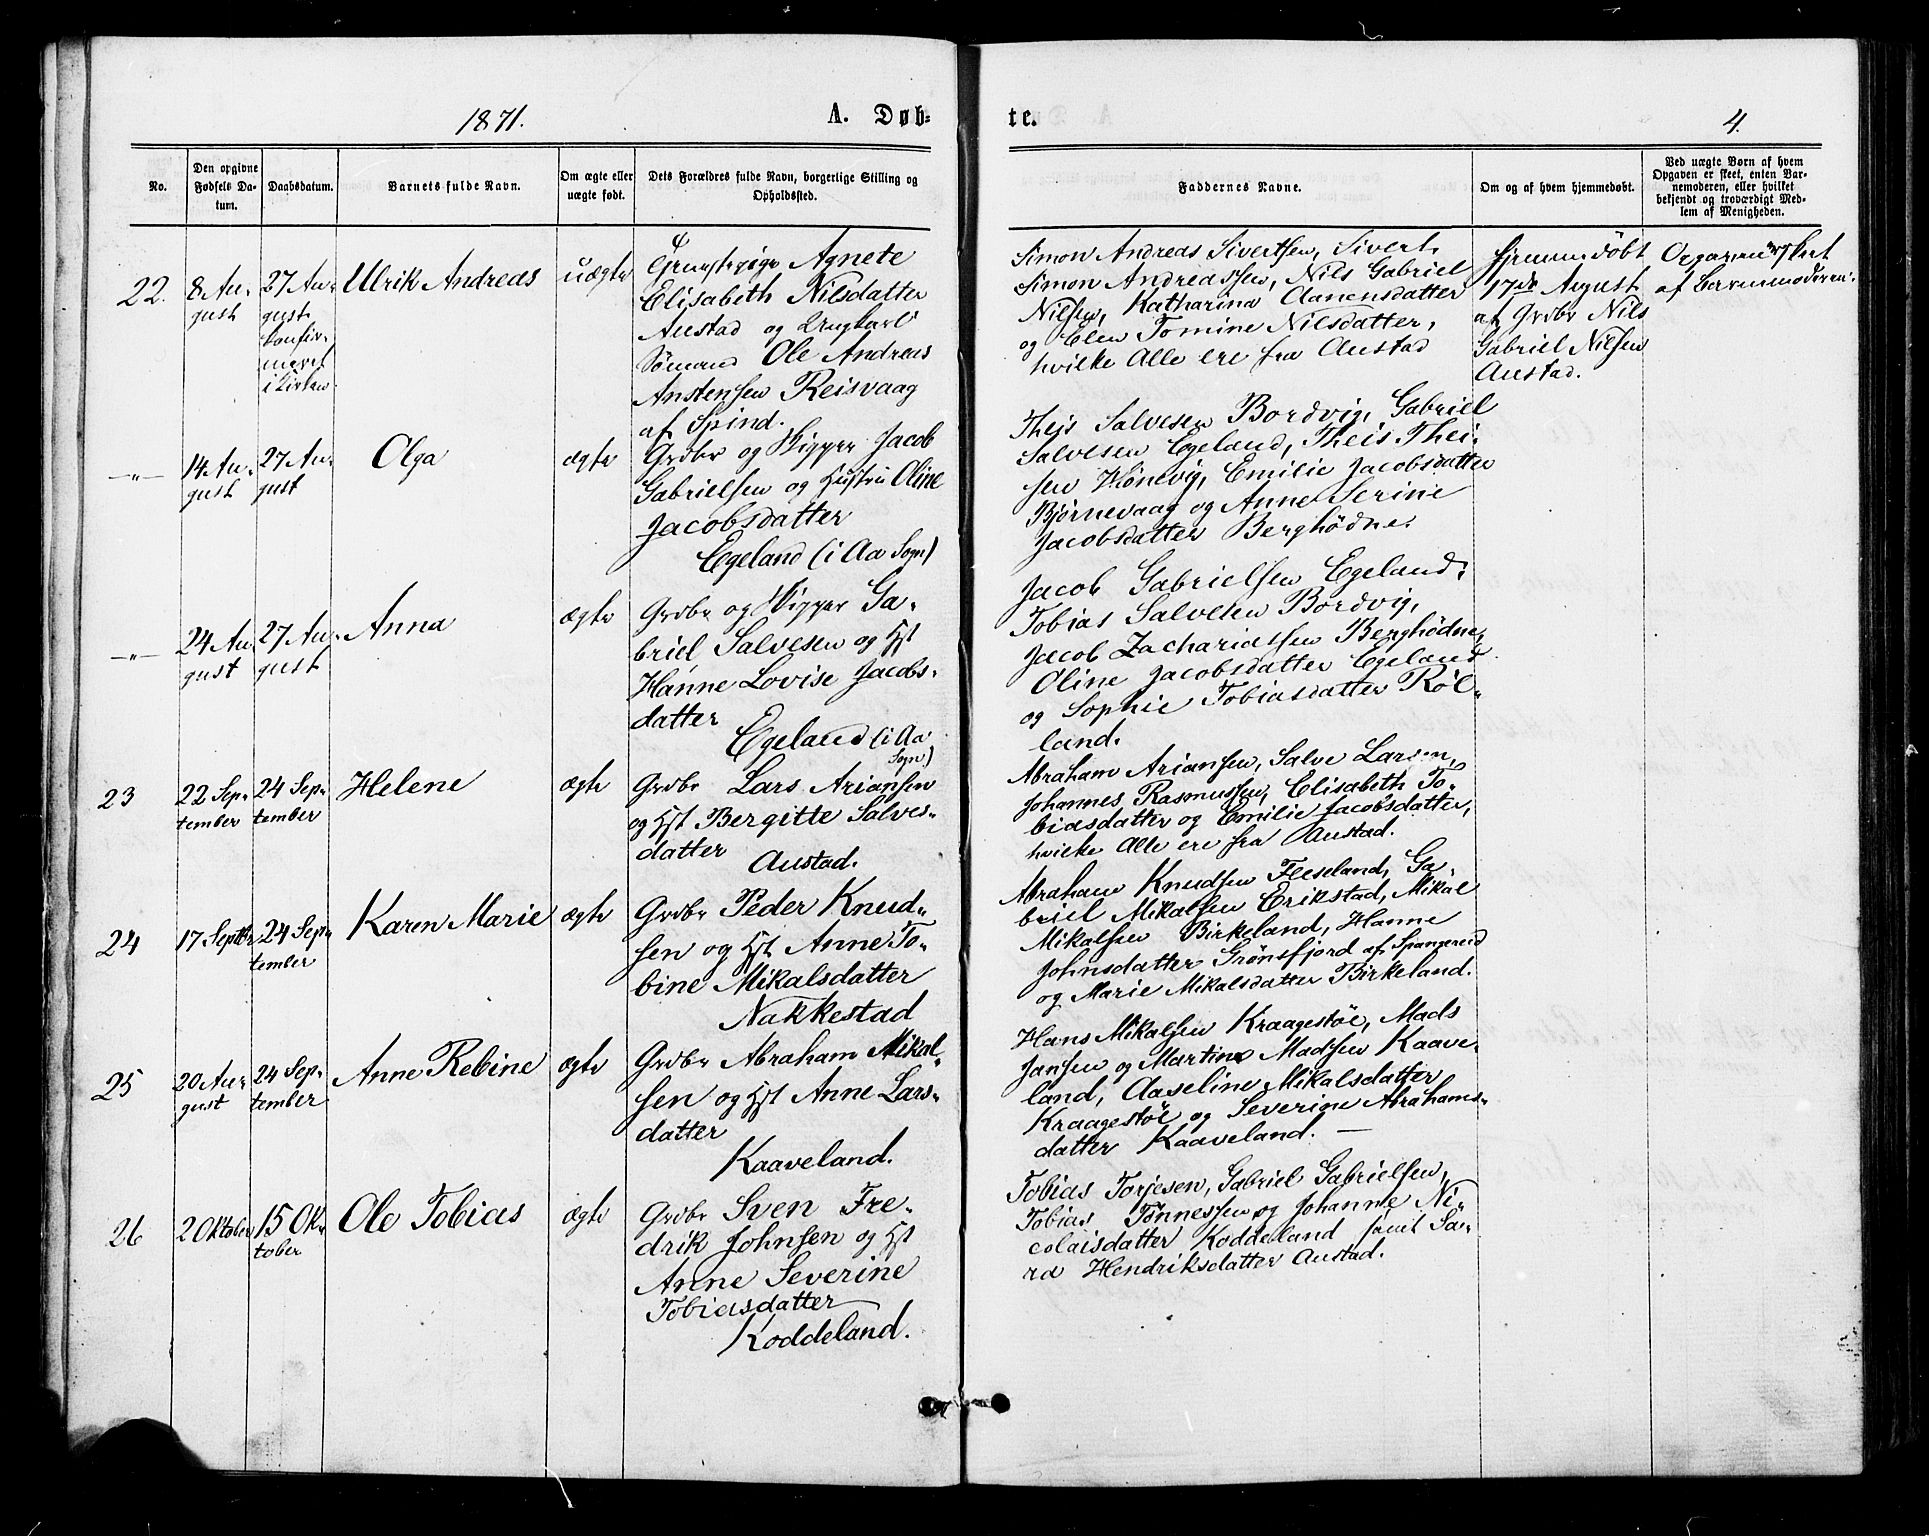 1871.
A. Døb-
te.
4.
No.
Den opgivne
Fødsels Da-
tum.
Daabsdatum.
Barnets fulde Navn.
Om ægte eller
uægte født.
Dets Forældres fulde Navn, borgerlige Stilling og
Opholdssted.
Faddernes Navne.
Om og af hvem hjemmedøbt.
Ved uægte Børn af hvem
Opgaven er skeet, enten Bar-
nemoderen, eller hvilket
bekjendt og troværdigt Med-
lem af Menigheden.
22.
8 Au-
gust
27 Au-
gust
konfir-
meret
i Kirken.
Ulrik Andreas
uægte
Tjenestepige Agnete
Elisabeth Nilsdatter
Austad og Ungkarl
Sømand Ole Andreas
Anstensen Reisvaag
af Spind.
Simon Andreas Sivertsen, Sivert
Simon Andreassen, Nils Gabriel
Nilsen, Katharina Aanensdatter
og Elen Tomine Nilsdatter,
hvilke Alle ere fra Austad
Hjemmedöbt
17de August
af Grdbr Nils
Gabriel Nilsen
Austad.
Opgaven er skeet
af Barnemoderen.
—"—
14 Au-
gust
27 Au-
gust
Olga
ægte
Grdbr og Skipper Jacob
Gabrielsen og Hustru Oline
Jacobsdatter
Egeland (i Aa Sogn)
Thejs Salvesen Bordvig, Gabriel
Salvesen Egeland, Theis Thei-
sen Hönevig, Emilie Jacobsdatter
Björnevaag og Anne Serine
Jacobsdatter Berghödne.
—"—
24 Au
gust
27 Au-
gust
Anna
ægte
Grdbr og Skipper Ga-
briel Salvesen og Hst
Hanne Lovise Jacobs-
datter
Egeland (i Aa
Sogn)
Jacob Gabrielsen Egeland,
Tobias Salvesen Bordvig,
Jacob Zachariassen Berghödne,
Oline Jacobsdatter Egeland
og Sophie Tobiasdatter Röi-
land.
23
22 Sep-
tember
24 Sep-
tember
Helene
ægte
Grdbr Lars Ariansen
og Hst Bergitte Salves-
datter
Austad.
Abraham Ariansen, Salve Larsen,
Johannes Rasmussen, Elisabeth To-
biasdatter og Emilie Jacobsdatter,
hvilke Alle ere fra Austad.
24
17 Septbr
24 Sep-
tember
Karen Marie
ægte
Grdbr Peder Knud-
sen og Hst Anne To-
bine Mikalsdatter
Nakkestad
Abraham Knudsen Fleseland, Ga
briel Mikalsen Erikstad, Mikal
Mikalsen Birkeland, Hanne
Johnsdatter Grönsfjord af Spangereid
og Marie Mikalsdatter Birkeland.
25
20 Au-
gust
24 Sep-
tember
Anne Rebine
ægte
Grdbr Abraham Mikal-
sen og Hst Anne Lars-
datter
Kaaveland.
Hans Mikalsen Kraagestöl, Mads
Jansen og Martin Madsen Kaave-
land, Aaseline Mikalsdatter
Kraagestöl og Severine Abrahams-
datter Kaaveland. —
26
2 Oktober
15 Ok-
tober
Ole Tobias
ægte
Grdbr Sven Fre-
drik Johnsen og Hst
Anne Severine
Tobiasdatter
Koddeland.
Tobias Torjesen, Gabriel Gabrielsen,
Tobias Tönnessen og Johanne Ni-
colaisdatter Koddeland samt Sa-
ra Hendriksdatter Austad.